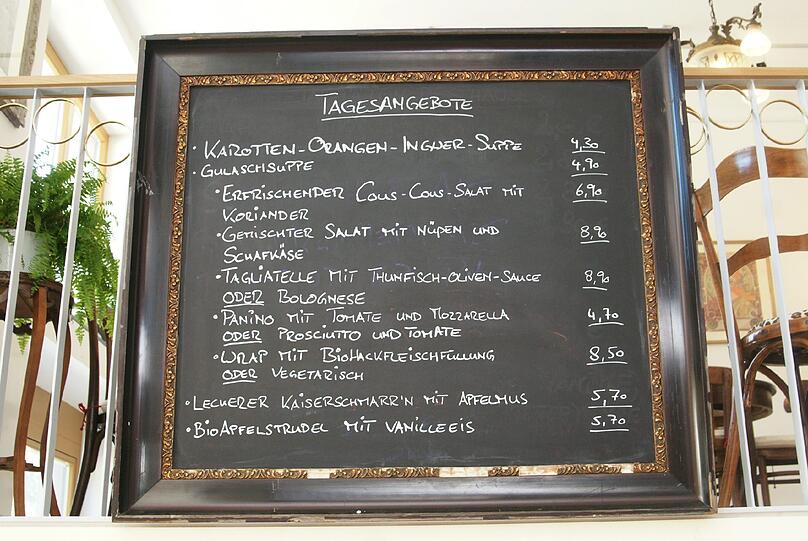 TAGESANGEBOTE
• KAROTTEN-ORANGEN-INGWER-SUPPE 4,30
• GULASCHSUPPE 4,90
• ERFRISCHENDER COUS-COUS-SALAT MIT 6,90
KORIANDER
• GEMISCHTER SALAT MIT NÜßEN UND 8,90
SCHAFKÄSE
• TAGLIATELLE MIT THUNFISCH-OLIVEN-SAUCE 8,90
ODER BOLOGNESE
• PANINO MIT TOMATE UND MOZZARELLA 4,70
ODER PROSCIUTTO UND TOMATE
• WRAP MIT BIOHACKFLEISCHFÜLLUNG 8,50
ODER VEGETARISCH
• LECKERER KAISERSCHMARR'N MIT APFELMUS 5,70
• BIOAPFELSTRUDEL MIT VANILLEEIS 5,70